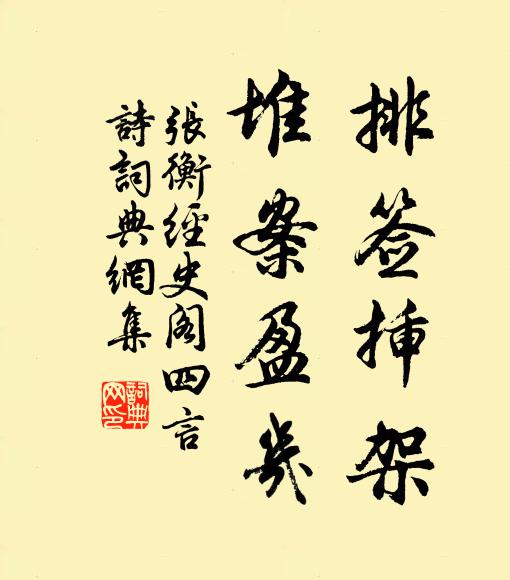 排签挿架
堆案盈几
張衡經史阁四言
詩詞典網集
詞典網印